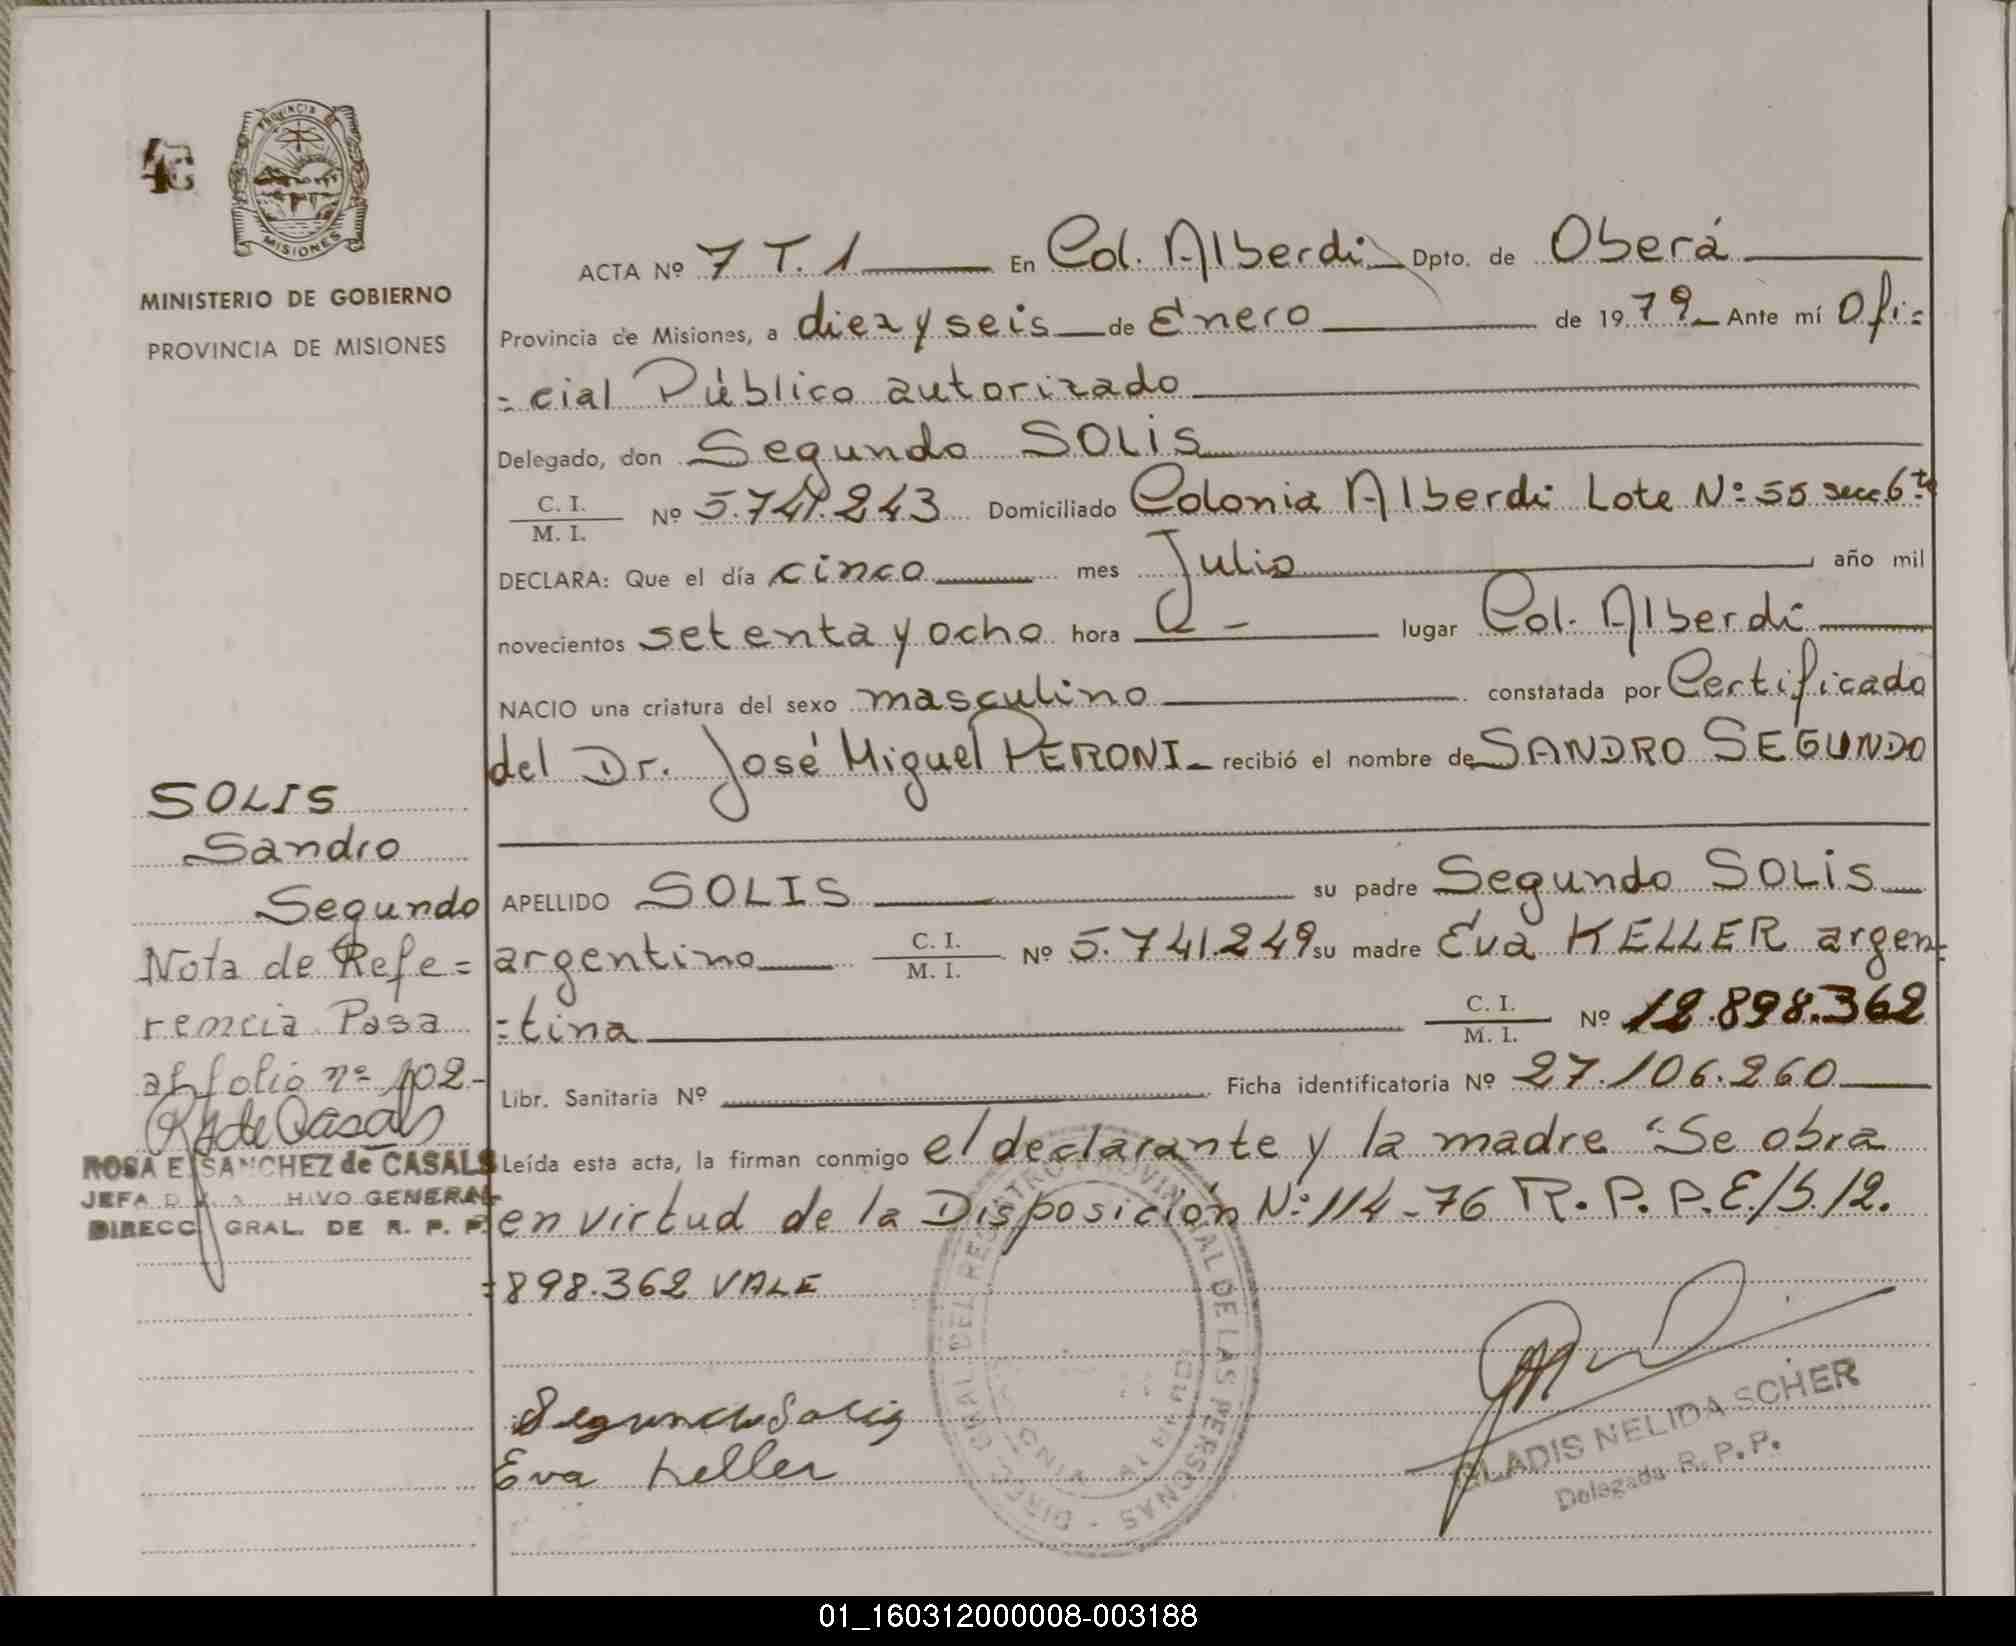 PROVINCIA DE
MISIONES
MINISTERIO DE GOBIERNO
PROVINCIA DE MISIONES
ACTA Nº 7 T. 1 En Col. Alberdi Dpto. de Oberá
Provincia de Misiones, a diez y seis de Enero de 1979 Ante mí Ofi=
=cial Público autorizado
Delegado, don Segundo SOLIS
C. I.
M. I. Nº 5.741.243 Domiciliado Colonia Alberdi Lote Nº 55 secc 6ta
DECLARA: Que el día cinco mes Julio año mil
novecientos setenta y ocho hora - lugar Col. Alberdi
NACIO una criatura del sexo masculino constatada por Certificado
del Dr. José Miguel PERONI recibió el nombre de SANDRO SEGUNDO
SOLIS
Sandro
Segundo
APELLIDO SOLIS su padre Segundo SOLIS
argentino C. I.
M. I. Nº 5.741.249 su madre Eva KELLER argen=
=tina C. I.
M. I. Nº 12.898.362
Libr. Sanitaria Nº Ficha identificatoria Nº 27.106.260
Leída esta acta, la firman conmigo el declarante y la madre "Se obra
en virtud de la Disposición Nº 114-76 R. P. P. E/S. 12.
=898.362 VALE
Nota de Refe=
rencia Pasa
al folio nº 102-
RSde Casals
ROSA E SANCHEZ de CASALS
JEFA HIVO GENERAL
DIRECC GRAL. DE R. P. P.
Segundo Solis
Eva Keller
DIRECC GRAL DEL REGISTRO PROVINCIAL DE LAS PERSONAS
GLADIS NELIDA SCHER
Delegada R. P. P.
01_160312000008-003188